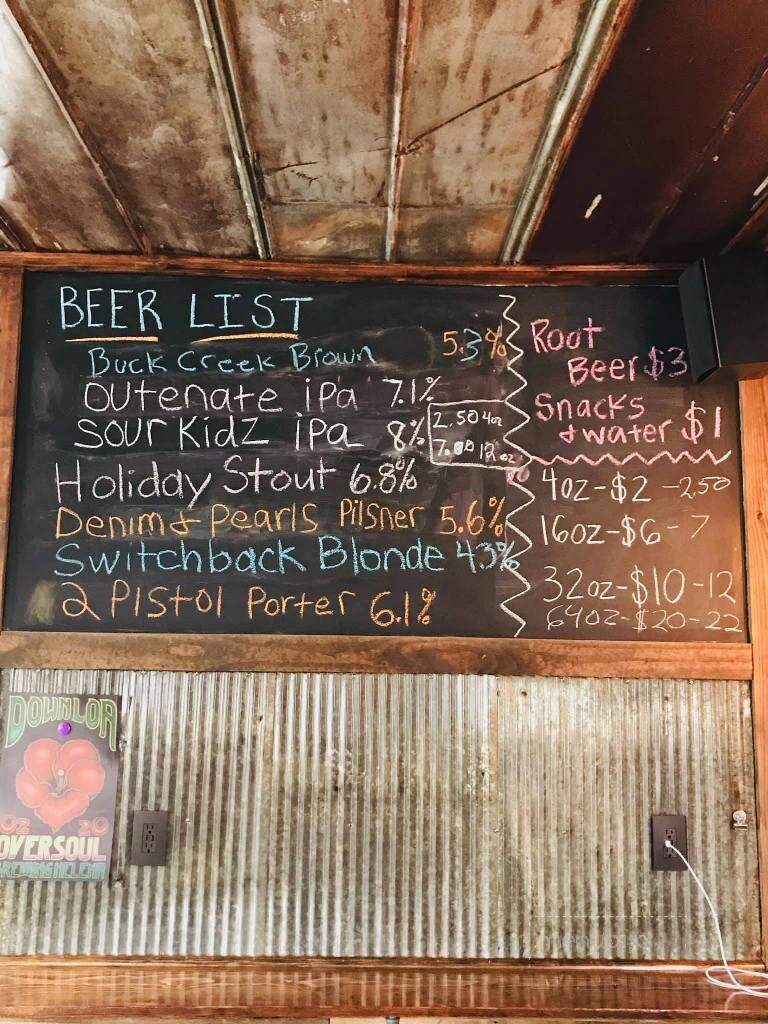 BEER LIST
Buck Creek Brown 5.3%
Outenate iPa 7.1%
Sour Kidz iPa 8%
2.50 4oz
7.00 12oz
Holiday Stout 6.8%
Denim & Pearls Pilsner 5.6%
Switchback Blonde 43%
2 Pistol Porter 6.1%
Root
Beer $3
Snacks
& water $1
4oz-$2-2.50
16oz-$6-7
32oz-$10-12
64oz-$20-22
DOWNLOA
20
OVERSOUL